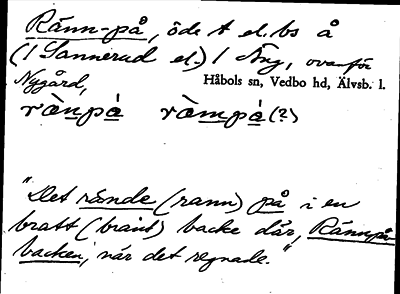 Ränn-på, öde t el. bs å
(I Sannerud el.) / Äng, ovanför
Nygård,
Håbols sn, Vedbo hd, Älvsb. l.
rànpá ràmpá (?)
"Det rände (rann) på i en
bratt (brant) backe där, Rännpå-
backen, när det regnade."